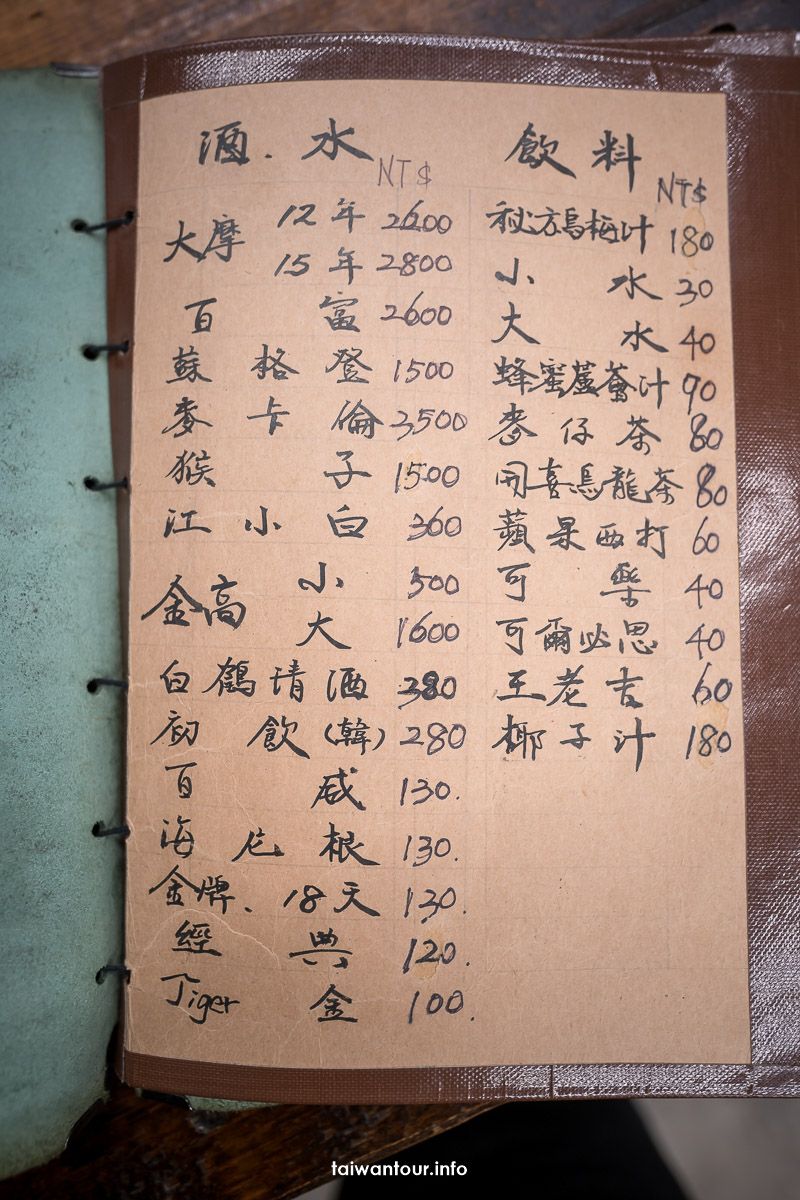 酒.水 NT$
大摩 12年 2600
15年 2800
百富 2600
蘇格登 1500
麥卡倫 3500
猴子 1500
江小白 360
金高 小 500
大 1600
白鶴清酒 380
初飲(韓) 280
百威 130.
海尼根 130.
金牌、18天 130.
經典 120.
Tiger 金 100.
飲料 NT$
秘方烏梅汁 180
小水 30
大水 40
蜂蜜蘆薈汁 90
麥仔茶 80
開喜烏龍茶 80
蘋果西打 60
可樂 40
可爾必思 40
王老吉 60
椰子汁 180
taiwantour.info